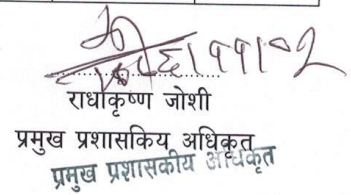 राधाकृष्ण जोशी
प्रमुख प्रशासकिय अधिकृत
प्रमुख प्रशासकीय अधिकृत